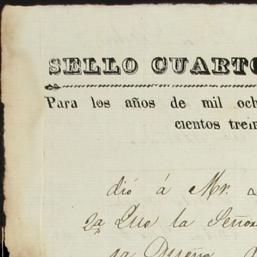 SELLO CUARTO
Para los años de mil och
cientos trein
dió á Mr. a
2a Que la Señor
sa Dueña